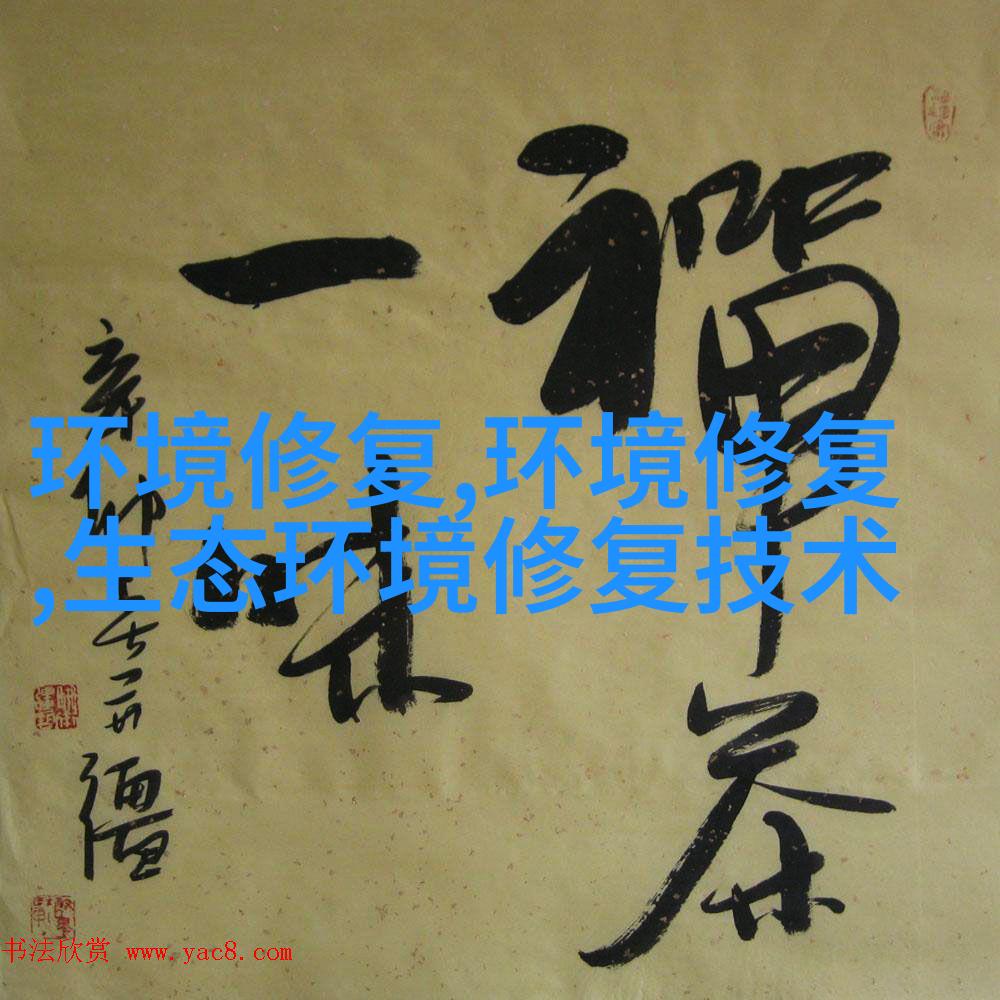 禅茶
一味
辛卯
环境修复,环境修复
,生态环境修复技术
书法欣赏 www.yac8.com